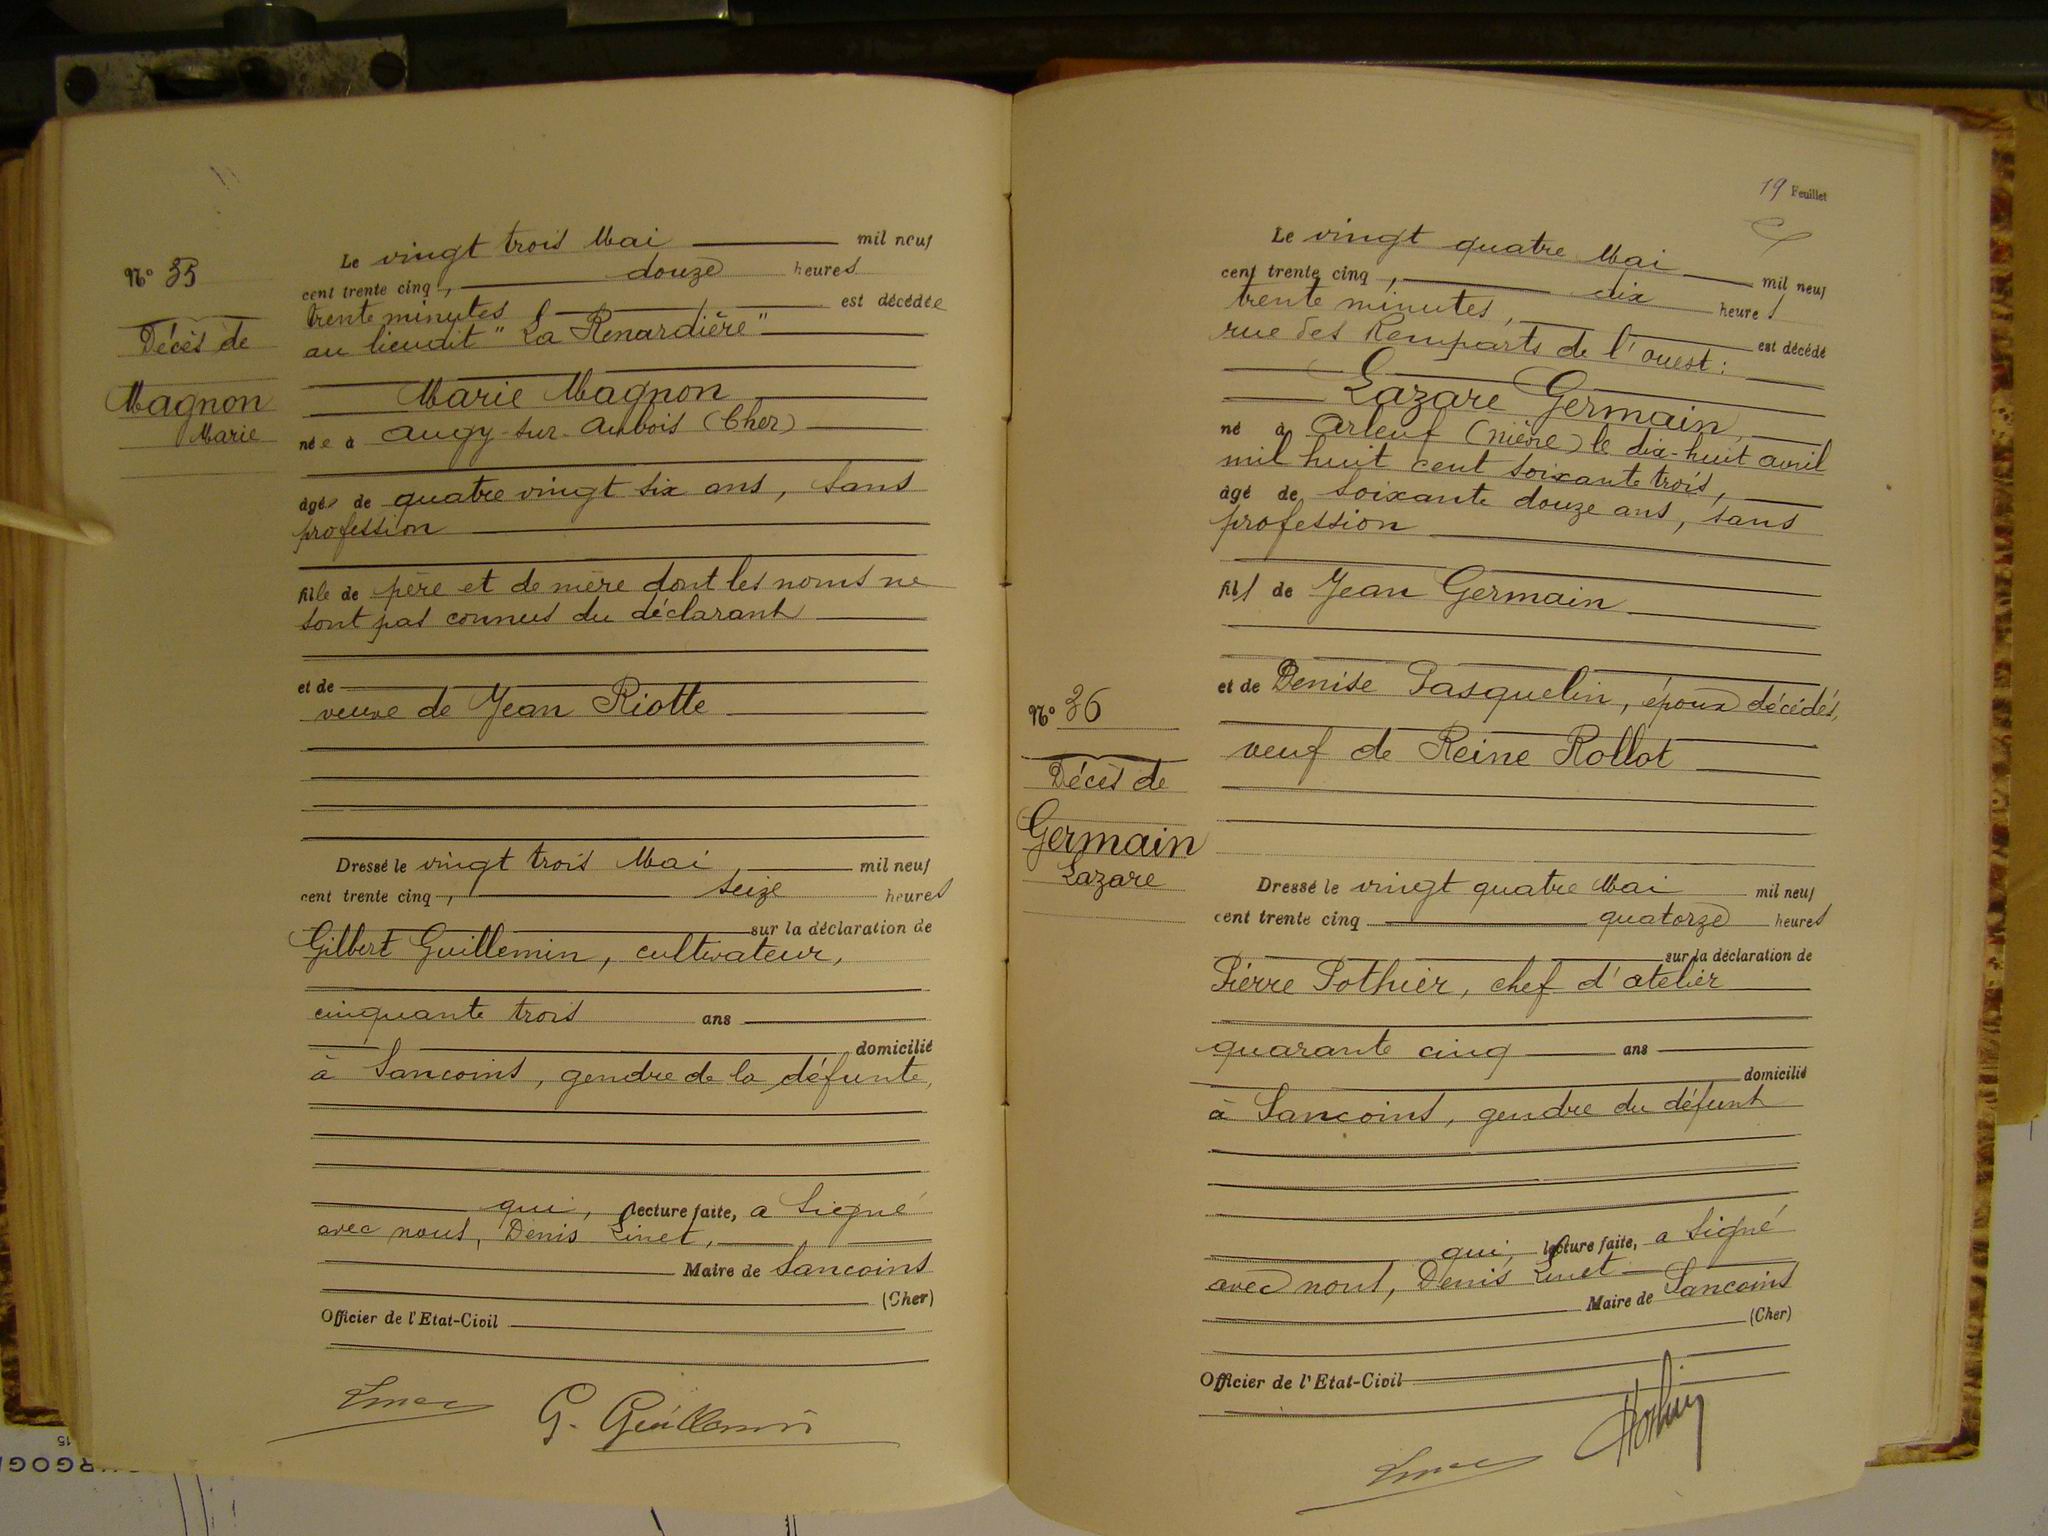 N° 35
Décès de
Magnon
Marie
Le vingt trois Mai mil neuf
cent trente cinq, douze heures
trente minutes, est décédée
au lieudit "La Renardière"
Marie Magnon
née à Augy-sur-Aubois (Cher)
âgée de quatre vingt six ans, sans
profession
fille de père et de mère dont les noms ne
sont pas connus du déclarant
et de
veuve de Jean Riotte
Dressé le vingt trois Mai mil neuf
cent trente cinq, seize heures
sur la déclaration de
Gilbert Guillemin, cultivateur,
cinquante trois ans
domicilié
à Sancoins, gendre de la défunte,
qui, lecture faite, a signé
avec nous, Denis Linet,
Maire de Sancoins
(Cher)
Officier de l'Etat-Civil
G. Guillemin
19 Feuillet
Le vingt quatre Mai mil neuf
cent trente cinq, dix heures
trente minutes,
rue des Remparts de l'ouest: est décédé
Lazare Germain
né à Arleuf (Nièvre) le dix-huit avril
mil huit cent soixante trois,
âgé de soixante douze ans, sans
profession
fils de Jean Germain
N° 36
Décès de
Germain
Lazare
et de Denise Pasquelin, époux décédés,
veuf de Reine Rollot
Dressé le vingt quatre Mai mil neuf
cent trente cinq quatorze heures
sur la déclaration de
Pierre Pothier, chef d'atelier
quarante cinq ans
domicilié
à Sancoins, gendre du défunt
qui, lecture faite, a signé
avec nous, Denis Linet
Maire de Sancoins
(Cher)
Officier de l'Etat-Civil